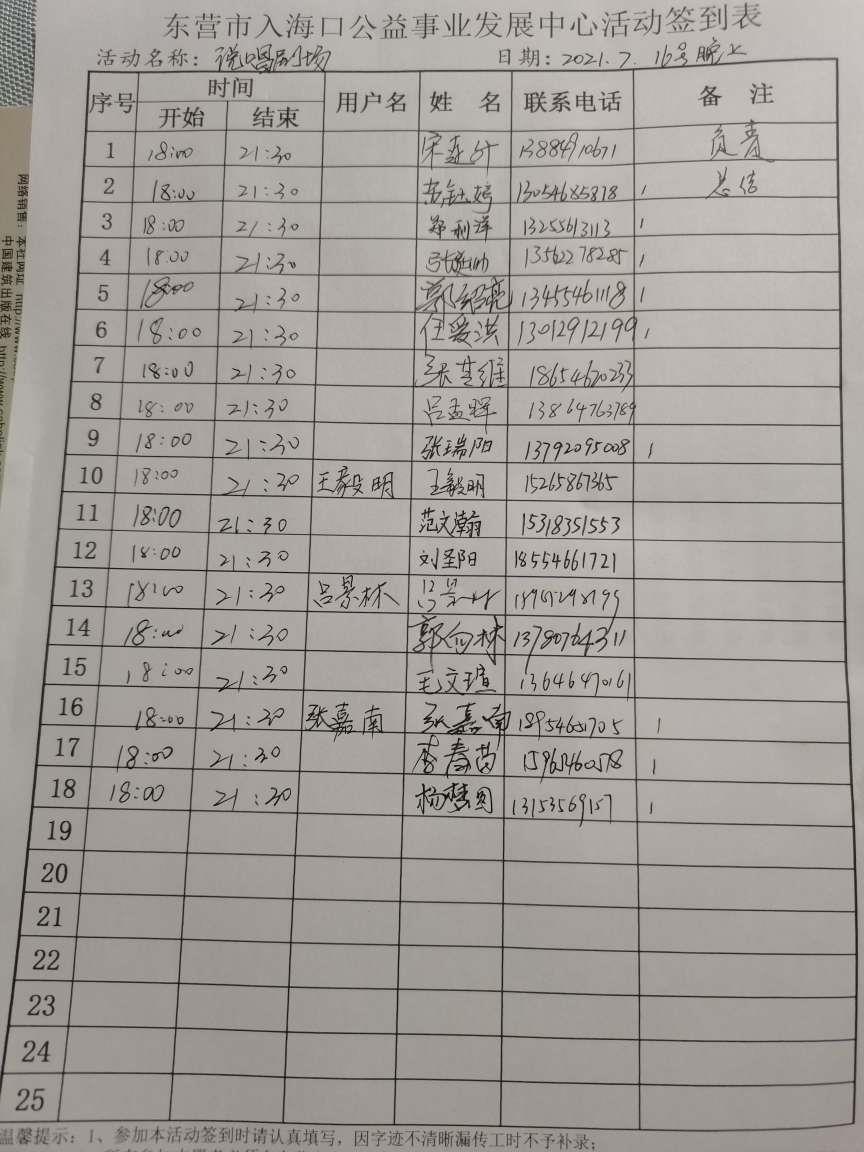 东营市入海口公益事业发展中心活动签到表
活动名称：说唱剧场 日期：2021.7.16号晚上
序号 时间 用户名 姓 名 联系电话 备 注
开始 结束
1 18:00 21:30 13884910671 负责
2 18:00 21:30 13054685818 总结
3 18:00 21:30 郑利洋 13255613113
4 18:00 21:30 13562278285
5 18:00 21:30 郭绍亮 13455461118
6 18:00 21:30 任爱洪 13012912199
7 18:00 21:30 18654620233
8 18:00 21:30 吕孟晖 13864763789
9 18:00 21:30 张瑞阳 13792095008
10 18:00 21:30 王毅明 王毅明 15265867365
11 18:00 21:30 范文瀚 15318351553
12 18:00 21:30 刘圣阳 18554661721
13 18:00 21:30 吕景林
14 18:00 21:30 13780764311
15 18:00 21:30 王文瑄 13646470161
16 18:00 21:30 张嘉南 张嘉南
17 18:00 21:30 李春苗 15965460578
18 18:00 21:30 杨梦圆 13153569157
19
20
21
22
23
24
25
温馨提示：1、参加本活动签到时请认真填写，因字迹不清晰漏传工时不予补录；
网络销售：本社网址 http://www.
中国建筑出版在线 http://www.cabplink.com